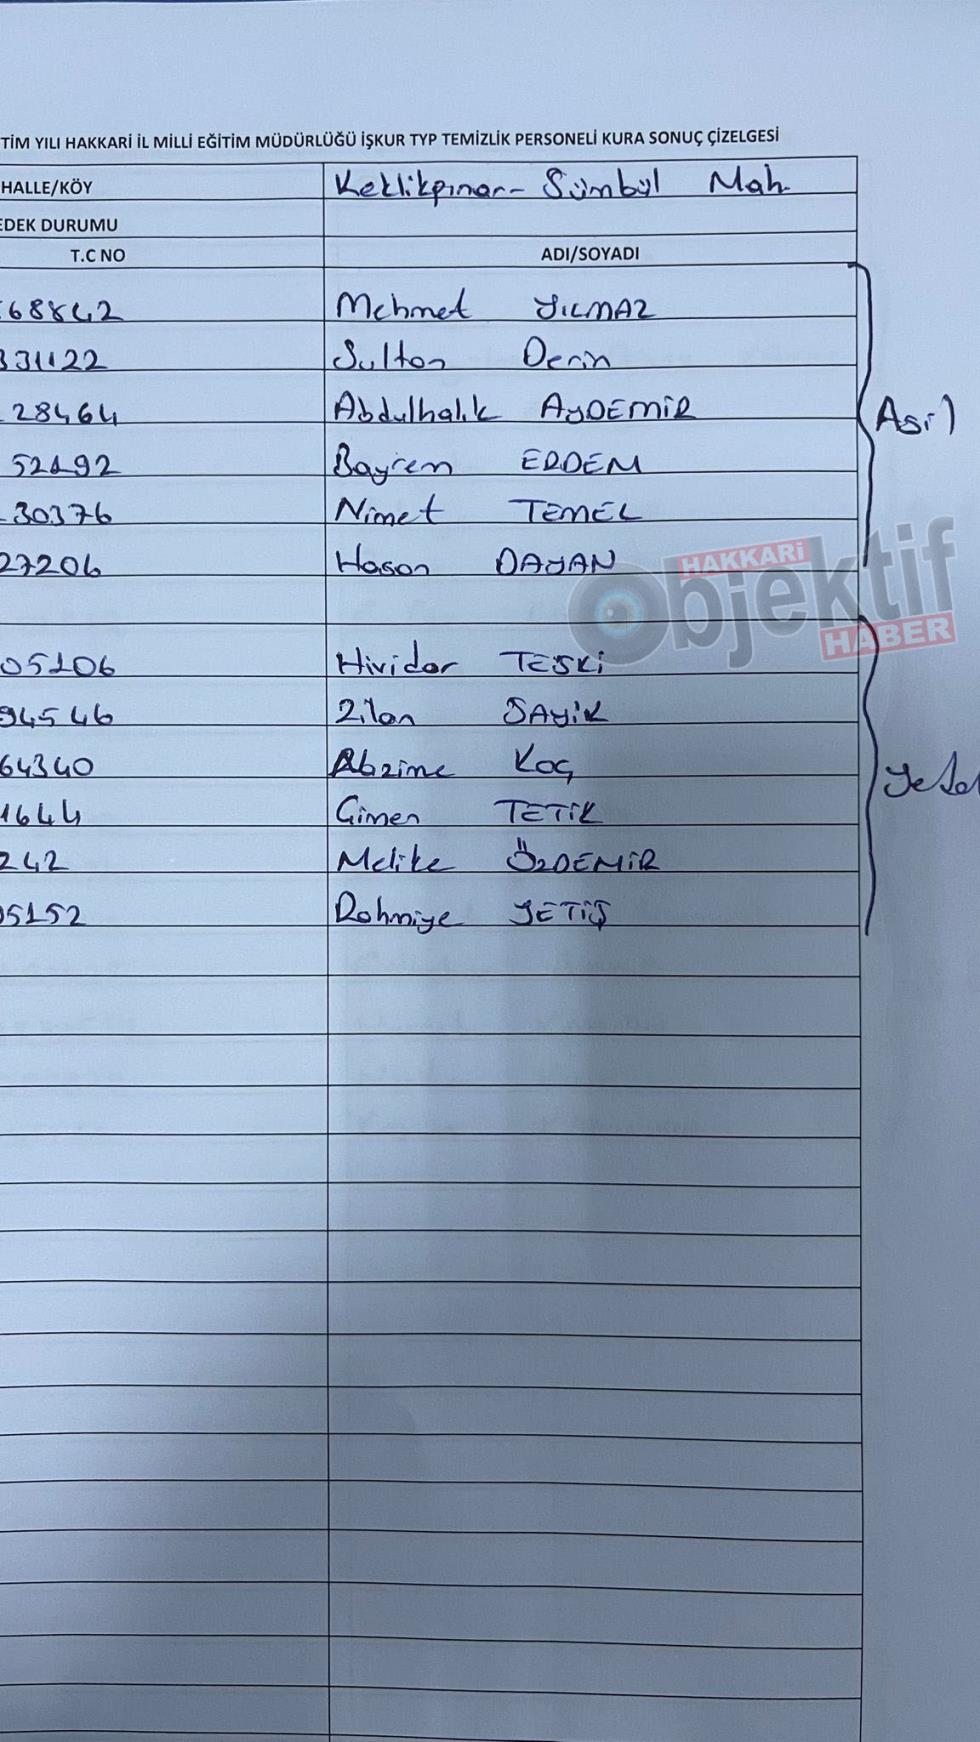 TİM YILI HAKKARİ İL MİLLİ EĞİTİM MÜDÜRLÜĞÜ İŞKUR TYP TEMİZLİK PERSONELİ KURA SONUÇ ÇİZELGESİ
HALLE/KÖY Keklikpınar-Sümbül Mah.
EDEK DURUMU
T.C NO ADI/SOYADI
68842 Mehmet YILMAZ
331122 Sultan Derin
28464 Abdulhalık AYDEMİR
Asil
52192 Bayram ERDEM
30376 Nimet TEMEL
27206 Hasan DAYAN
HAKKARİ
Objektif
HABER
05106 Hividar TEŞKİ
94546 Zilan SAYİK
64340 Abzime KOÇ
Yedek
1644 Çimen TETİK
242 Melike ÖZDEMİR
05152 Rahmiye YETİŞ